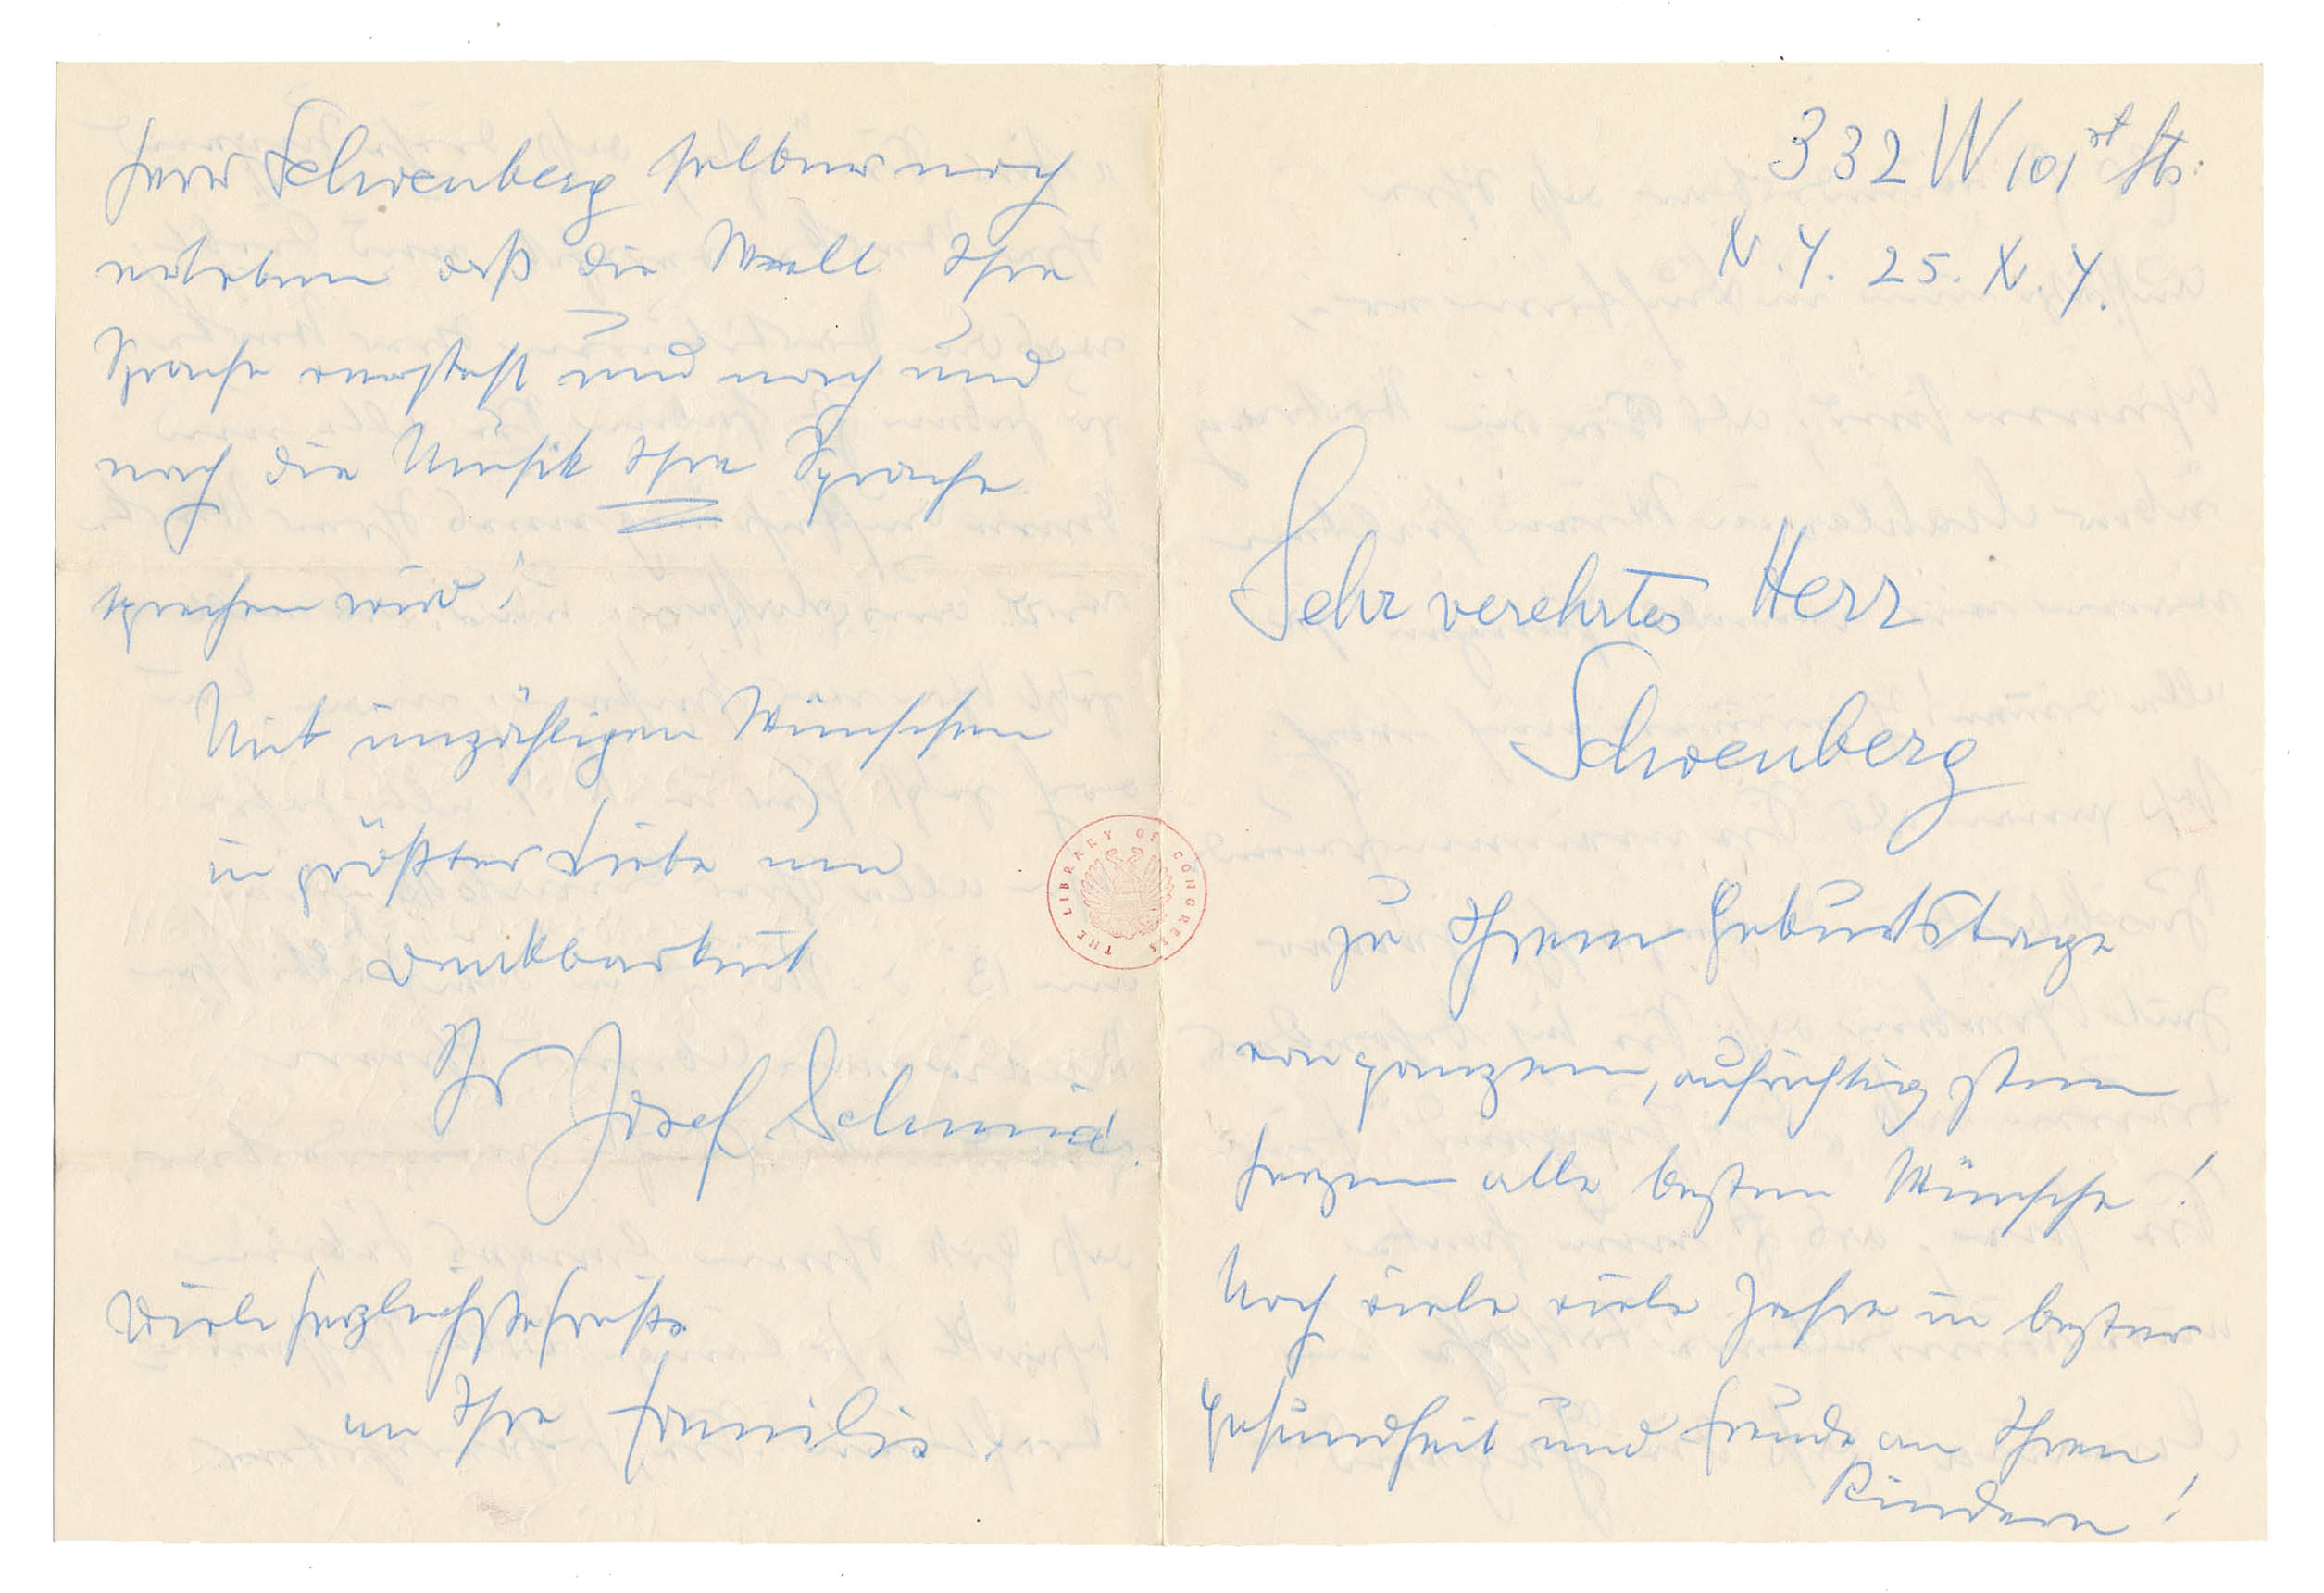 332 W 101st Str.
N.Y. 25. N.Y.
Sehr verehrter Herr
Schoenberg
zu Ihrem Geburtstage
von ganzem, aufrichtigstem
Herzen alle besten Wünsche!
Noch viele viele Jahre in bester
Gesundheit und Freude an Ihren
Kindern!
Herr Schoenberg selber noch
erleben daß die Welt Ihre
Sprache versteht und nach und
nach die Musik Ihre Sprache
sprechen wird!
Mit unzähligen Wünschen
in größter Liebe und
Dankbarkeit
Ihr Josef Schmid.
Viele herzlichste Grüße
an Ihre Familie.
THE LIBRARY OF CONGRESS